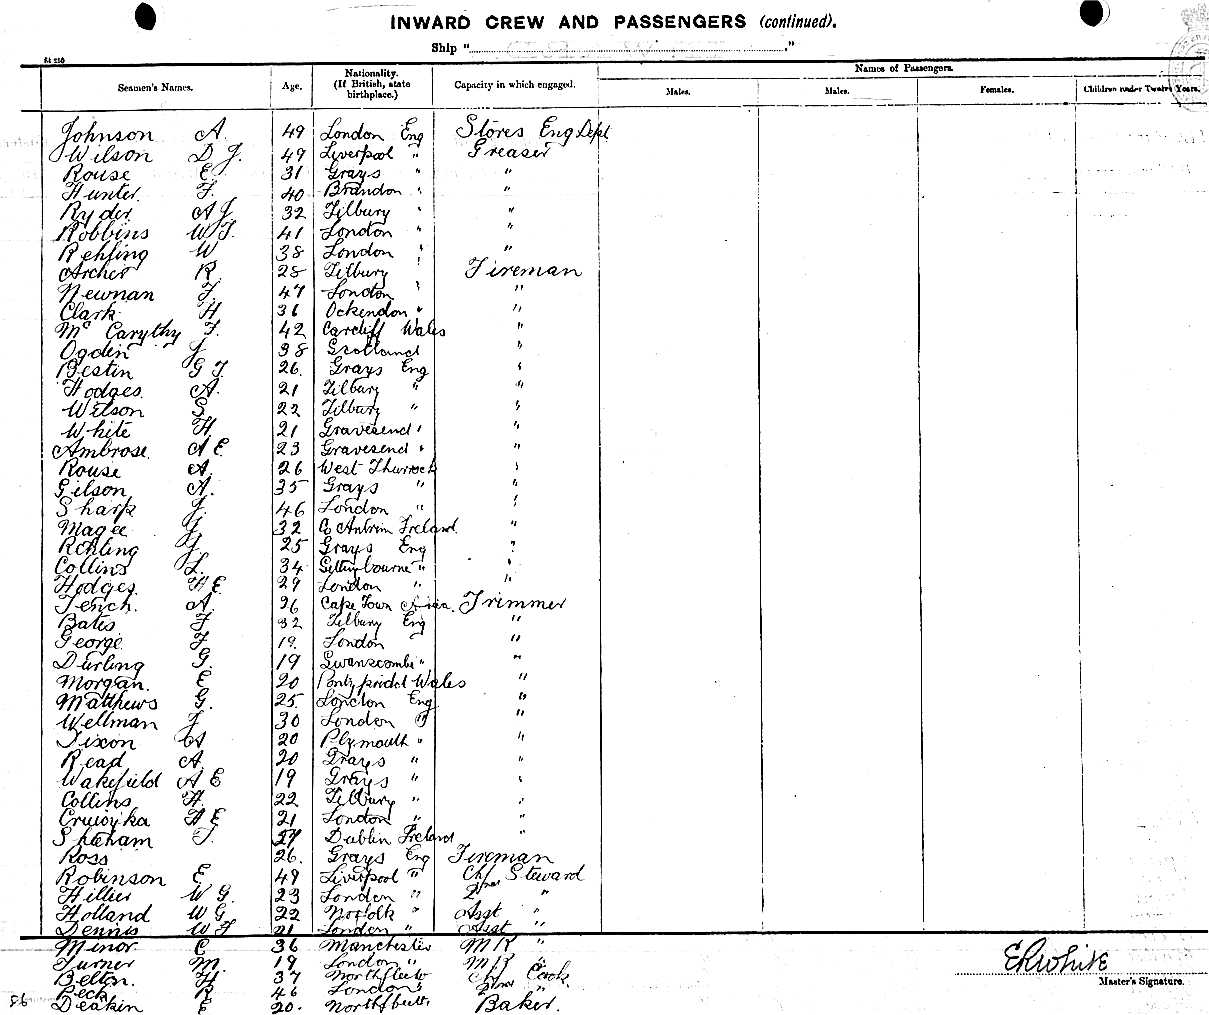 INWARD CREW AND PASSENGERS (continued).
Ship " "
Seamen's Names. Age. Nationality. (If British, state birthplace.) Capacity in which engaged. Names of Passengers.
Males. Males. Females. Children under Twelve Years.
Johnson A. 49 London Eng Stores Eng Dept
Wilson D J. 49 Liverpool " Greaser
Rouse E. 31 Grays " "
Hunter F. 40 Brandon " "
Ryder A J 32 Tilbury " "
Robbins W T. 41 London " "
Rehling W 38 London " "
Archer R. 28 Tilbury " Fireman
Newnan J. 47 London " "
Clark H 36 Ockendon " "
Mc Carythy F. 42 Cardiff Wales "
Ogden J. 38 Scotland "
Bestin G T. 26. Grays Eng "
Hodges A. 21 Tilbury " "
Wilson S 22 Tilbury " "
White H. 21 Gravesend " "
Ambrose. A E. 23 Gravesend " "
Rouse A. 26 West Thurrock "
Gilson A. 35 Grays " "
Sharp J. 46 London " "
Magee J. 32 Co Antrim Ireland. "
Rehling J. 25 Grays Eng "
Collins L. 34 Sittingbourne " "
Hodges. H E. 29 London " "
Tench. A. 26 Cape Town Trimmer
Bates F 32 Tilbury Eng "
George F 19. London " "
Durling G. 19 Swanscombe " "
Morgan. E 20 Pontypridd Wales "
Matthews G. 25. London Eng "
Wellman J 30 London " "
Tixon A 20 Plymouth " "
Read A. 20 Grays " "
Wakefield A E 19 Grays " "
Collins H. 22 Tilbury " "
H E 21 London " "
T. Dublin Ireland "
Ross 26. Grays Eng Fireman
Robinson E 49 Liverpool " Chf Steward
Hillier W G. 23 London " 2nd "
Holland W G. 22 Norfolk " Asst "
Dennis W F 21 London " Asst "
Minor E 36 Manchester M R "
Turner M. 19 London " M R "
Belton. H 37 Northfleet Chf Cook
Beck R 46 London " 2nd "
Deakin E 20. Northfleet Baker.
E R White
Master's Signature.